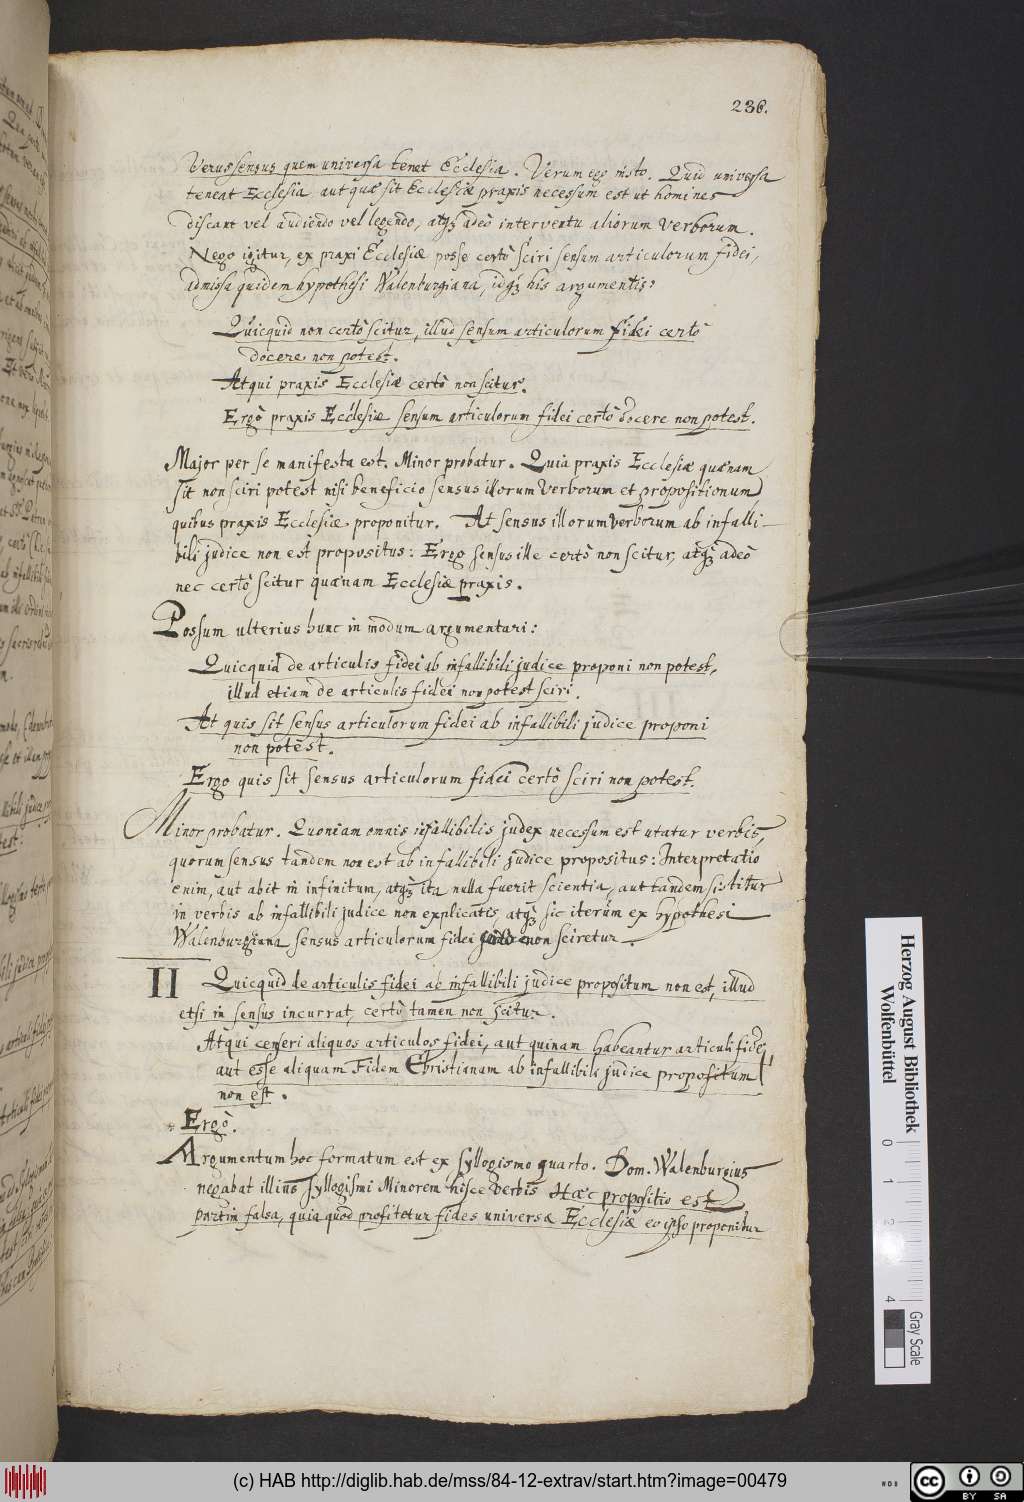 236.
Verus sensus quem universa tenet Ecclesia. Verum ego insto. Quid universa
teneat Ecclesia aut quæ sit Ecclesiæ praxis necessum est ut homines
discant vel audiendo vel legendo, atq; adeò interventu aliorum verborum.
Nego igitur, ex praxi Ecclesiæ posse certò sciri sensum articulorum fidei,
admissa quidem hypothesi Walenburgiana, idq; his argumentis:
Quicquid non certò scitur, illud sensum articulorum fidei certò
docere non potest.
Atqui praxis Ecclesiæ certò non scitur.
Ergò praxis Ecclesiæ sensum articulorum fidei certò docere non potest.
Major per se manifesta est. Minor probatur. Quia praxis Ecclesiæ quænam
sit non sciri potest nisi beneficio sensus illorum verborum et propositionum,
quibus praxis Ecclesiæ proponitur. At sensus illorum verborum ab infalli-
bili judice non est propositus: Ergo sensus ille certò non scitur, atq; adeò
nec certò scitur quænam Ecclesiæ praxis.
Possum ulterius hunc in modum argumentari:
Quicquid de articulis fidei ab infallibili judice proponi non potest,
illud etiam de articulis fidei non potest sciri.
At quis sit sensus articulorum fidei ab infallibili judice proponi
non potest.
Ergo quis sit sensus articulorum fidei certò sciri non potest.
Minor probatur. Quoniam omnis infallibilis judex necessum est utatur verbis,
quorum sensus tandem non est ab infallibili judice propositus: Interpretatio
enim, aut abit in infinitum, atq; ita nulla fuerit scientia, aut tandem sistitur
in verbis ab infallibili judice non explicatis, atq; sic iterùm ex hypothesi
Walenburgiana sensus articulorum fidei non sciretur.
II Quicquid de articulis fidei ab infallibili judice propositum non est, illud
etsi in sensus incurrat, certò tamen non scitur.
Atqui censeri aliquos articulos fidei, aut quinam habeantur articuli fidei,
aut esse aliquam Fidem Christianam ab infallibili judice propositum
non est.
Ergò.
Argumentum hoc formatum est ex syllogismo quarto. Dom. Walenburgius
negabat illius syllogismi Minorem hisce verbis Hæc propositio est
partim falsa, quia quod profitetur fides universæ Ecclesiæ eo ipso proponitur
Herzog August Bibliothek
Wolfenbüttel
0 1 2 4
Gray Scale
(c) HAB http://diglib.hab.de/mss/84-12-extrav/start.htm?image=00479
cc BY SA